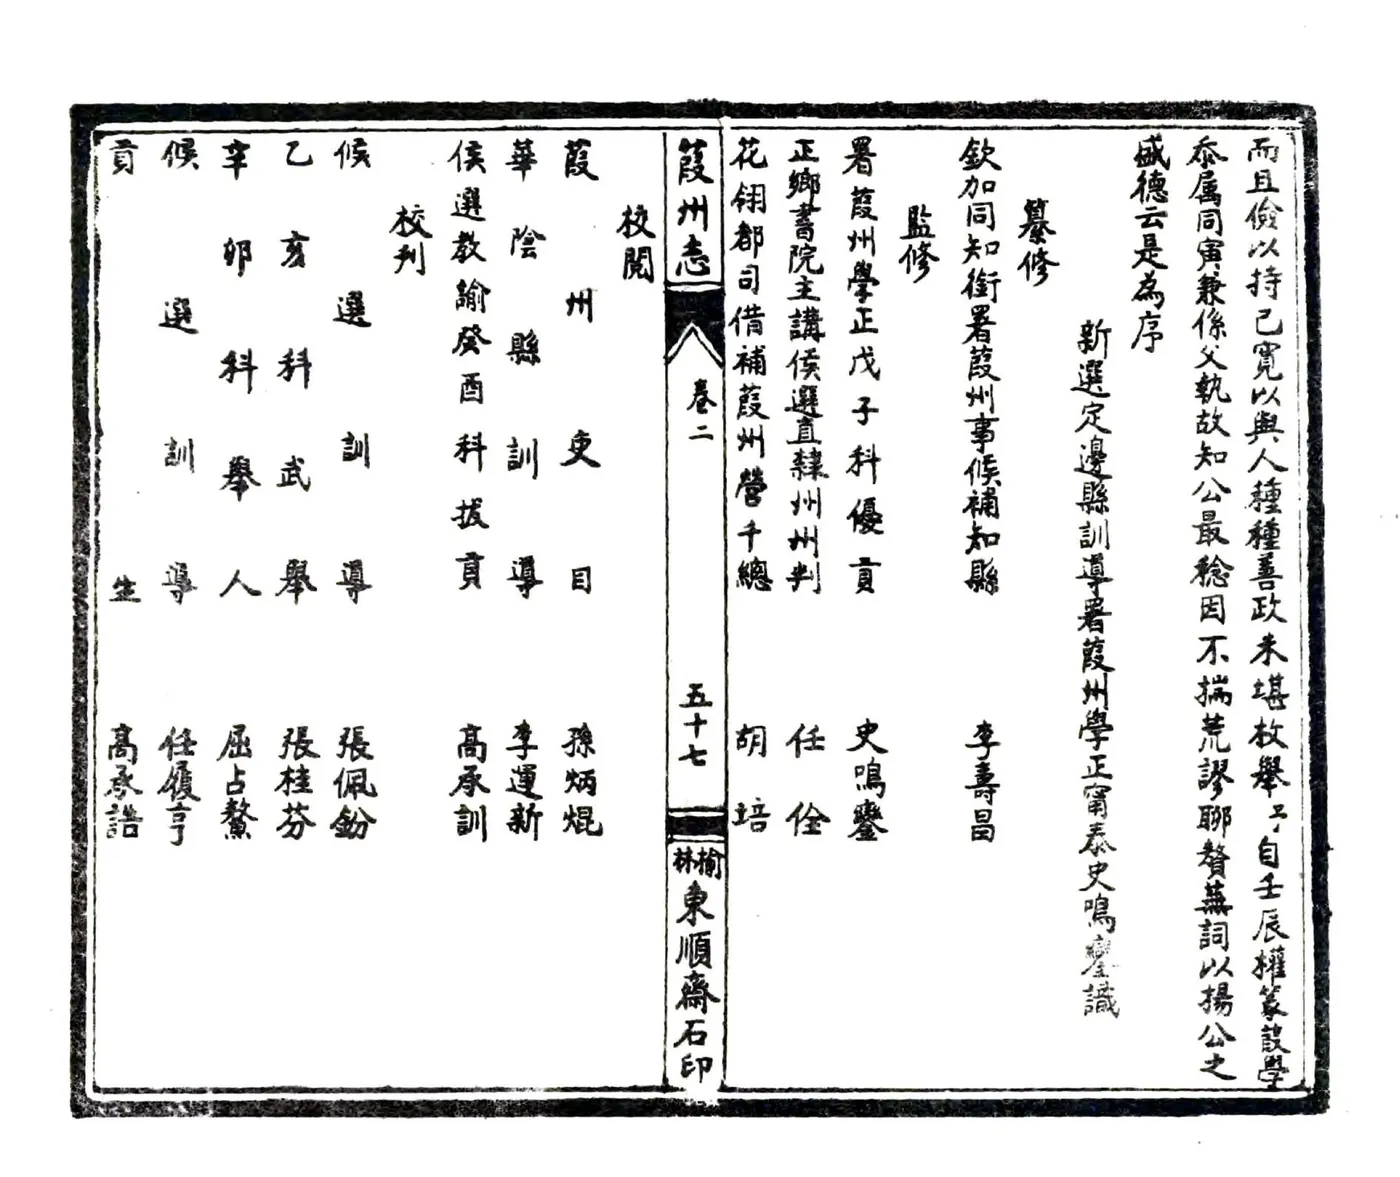 而且儉以持己寬以與人種種善政未堪枚舉予自壬辰權篆葭學
忝属同寅兼係父執故知公最稔因不揣荒謬聊贅蕪詞以揚公之
盛德云是為序
新選定邊縣訓導署葭州學正甯泰史鳴鑾識
纂修
欽加同知銜署葭州事候補知縣 李壽昌
監修
署葭州學正戊子科優貢 史鳴鑾
正鄉書院主講候選直隸州州判 任佺
花翎都司借補葭州營千總 胡培
葭州志 卷二 五十七 榆林東順齋石印
校閱
葭州吏目 孫炳焜
華陰縣訓導 李運新
候選教諭癸酉科拔貢 高承訓
校刋
候選訓導 張佩鈖
乙亥科武舉 張桂芬
辛卯科舉人 屈占鰲
候選訓導 任履亨
貢生 高承誥